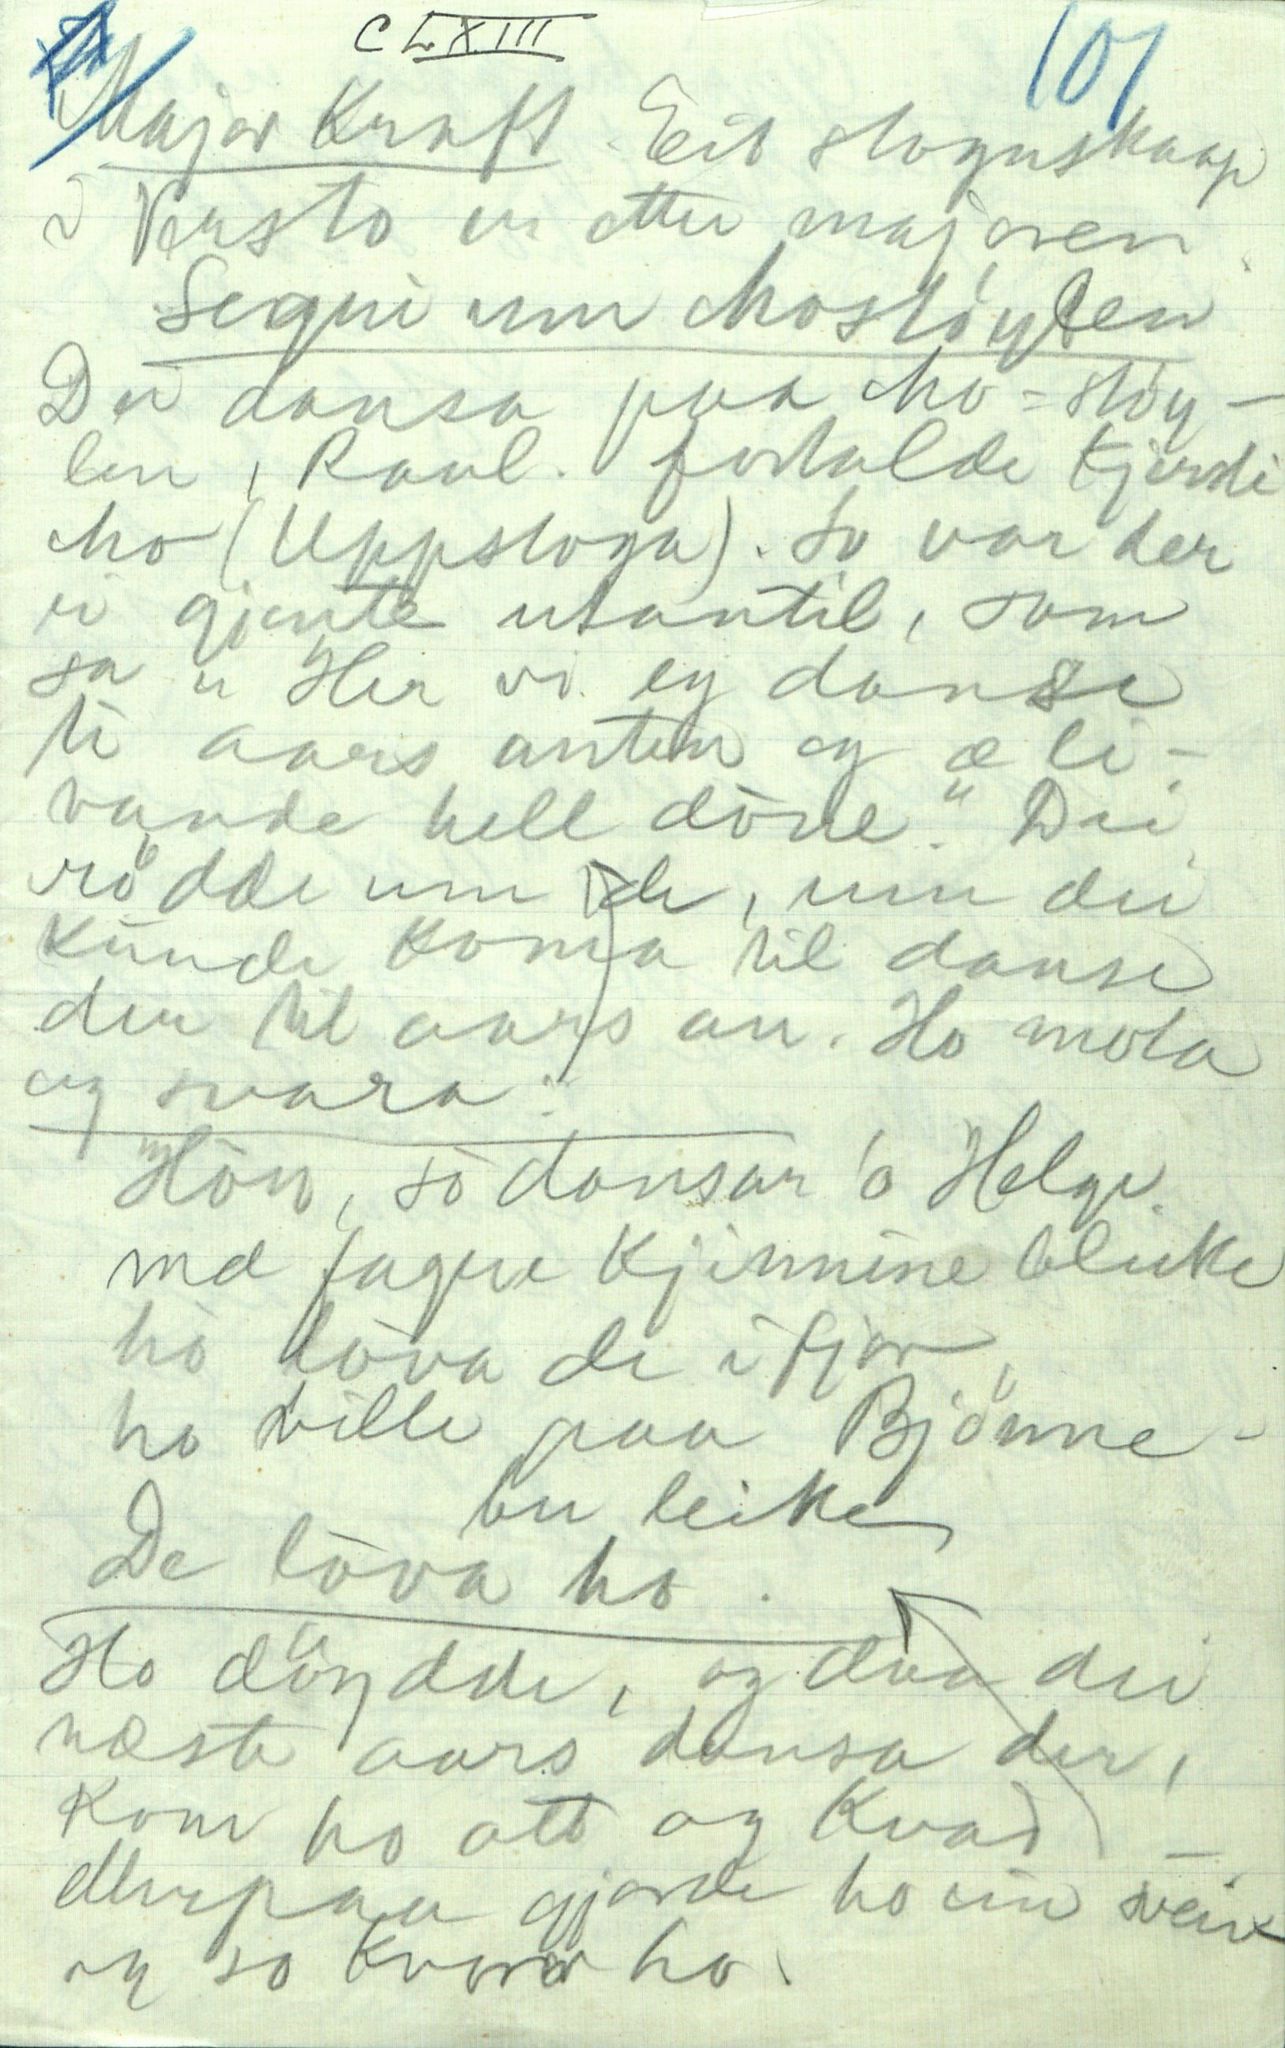 CLXIII
101
Major Kraft Eit stogusKaap
i Versto er etter majoren.
Segni um Mostöylen
Dei dansa paa Mo-stöy-
len, Raul. fortalde Kjersti
Mo (Uppstoga). So var der
ei gjente utantil, som
sa "Her vi eg danse
ti aars anten eg æ li-
vande hell döie". Dei
rödde um de, um dei
Kunde Koma til danse
der til aars an. Ho mola
og svara:
"Höio, so dansar o Helge.
md fagre Kjinnine bleike
ho lova de i fjor,
ho ville paa Björnne-
bu leike
De lova ho.
Ho döydde, og daa dei
næste aars dansa der,
Kom ho att og Kvad –
Derpaa gjorde ho ein sveiv
og so Kvarv ho.